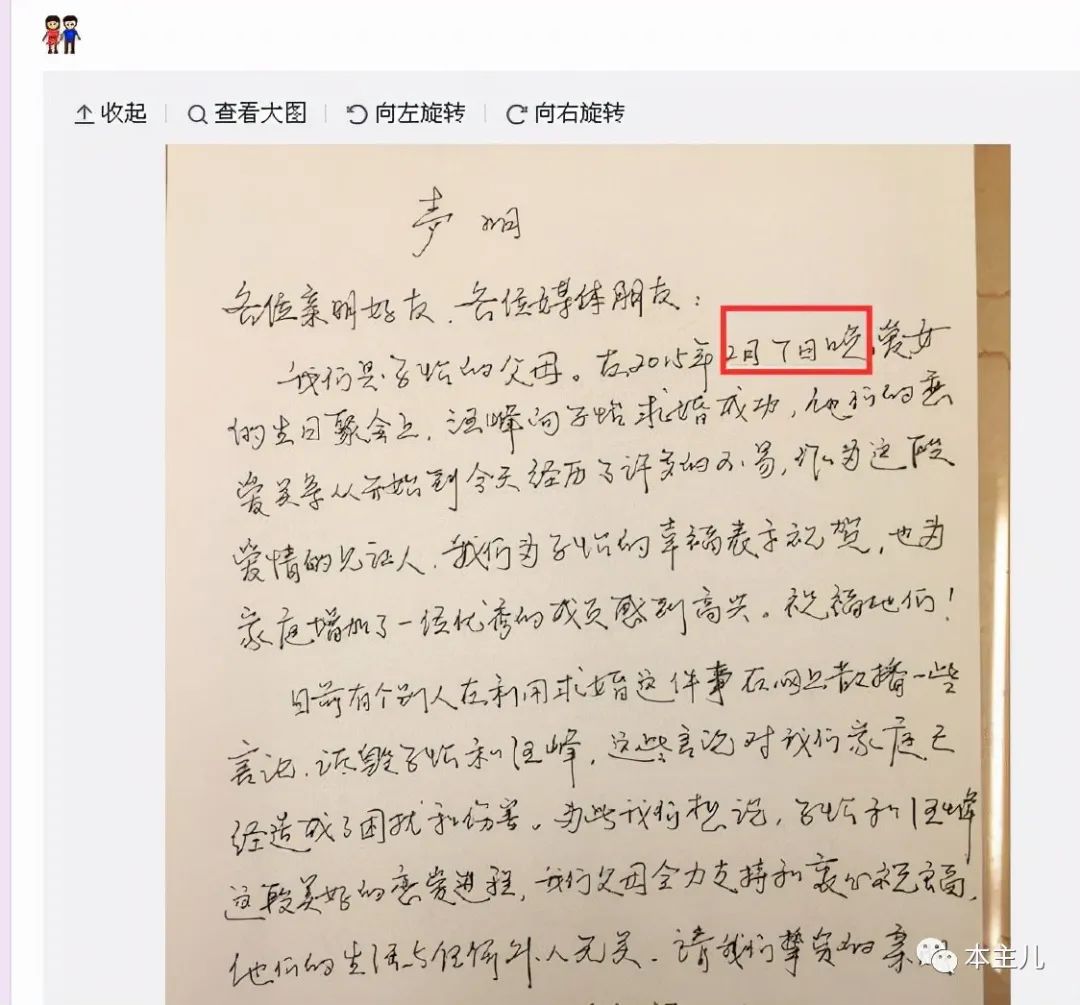 收起 查看大图 向左旋转 向右旋转
声明
各位亲朋好友、各位媒体朋友：
我们是子怡的父母。在2015年2月7日晚，爱女
的生日聚会上，汪峰向子怡求婚成功，他们的恋
爱关系从开始到今天经历了许多的不易，作为这段
爱情的见证人，我们为子怡的幸福表示祝贺，也为
家庭增加了一位优秀的成员感到高兴。祝福他们！
目前有个别人在利用求婚这件事在网上散播一些
言论，诋毁子怡和汪峰，这些言论对我们家庭已
经造成了困扰和伤害。为此我们想说，子怡和汪峰
这段美好的恋爱进程，我们父母全力支持和衷心祝福，
他们的生活与任何外人无关。请我们挚爱的亲
本主儿